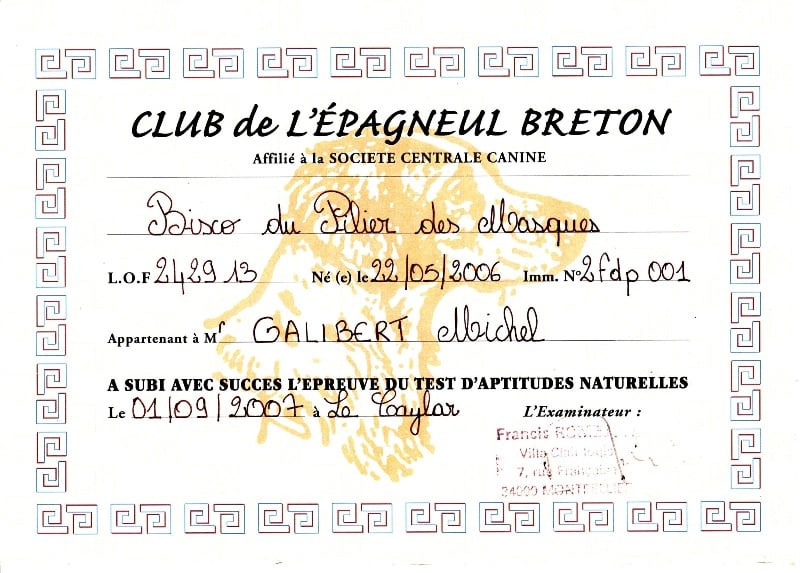 CLUB de L'ÉPAGNEUL BRETON
Affilié à la SOCIETE CENTRALE CANINE
Bisco du Pilier des Masques
L.O.F 242913 Né (e) le 22/05/2006 Imm. N° 2fdp 001
Appartenant à Mr GALIBERT Michel
A SUBI AVEC SUCCES L'EPREUVE DU TEST D'APTITUDES NATURELLES
Le 01/09/2007 à Le Caylar L'Examinateur :
Francis
Villa
7, rue
34000 MONTPELLIER